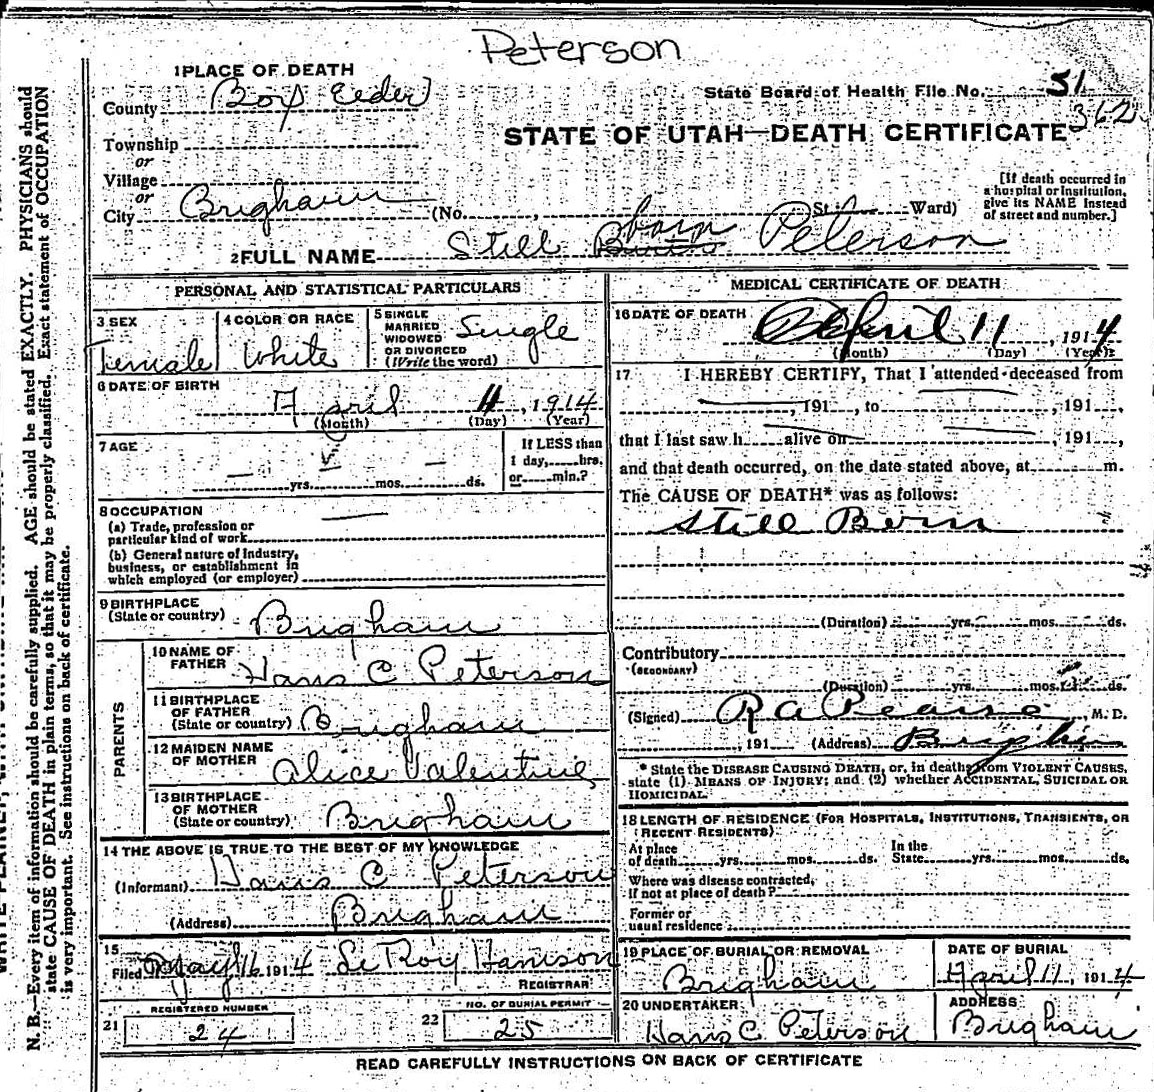 Peterson
1 PLACE OF DEATH
County Box Elder
State Board of Health File No. 51
362
STATE OF UTAH—DEATH CERTIFICATE
Township
or
Village
or
City Brigham (No. , St. Ward)
[If death occurred in
a hospital or institution,
give its NAME instead
of street and number.]
2 FULL NAME Still born Peterson
PERSONAL AND STATISTICAL PARTICULARS
3 SEX
Female
4 COLOR OR RACE
White
5 SINGLE
MARRIED
WIDOWED
OR DIVORCED
(Write the word)
Single
6 DATE OF BIRTH
April 11, 1914
(Month) (Day) (Year)
7 AGE
yrs. mos. ds.
If LESS than
1 day, hrs.
or min.?
8 OCCUPATION
(a) Trade, profession or
particular kind of work
(b) General nature of Industry,
business, or establishment in
which employed (or employer)
9 BIRTHPLACE
(State or country) Brigham
PARENTS
10 NAME OF
FATHER Hans C Peterson
11 BIRTHPLACE
OF FATHER
(State or country) Brigham
12 MAIDEN NAME
OF MOTHER Alice Valentine
13 BIRTHPLACE
OF MOTHER
(State or country) Brigham
14 THE ABOVE IS TRUE TO THE BEST OF MY KNOWLEDGE
(Informant) Hans C Peterson
(Address) Brigham
15
Filed May 16 1914 Le Roy
REGISTRAR
REGISTERED NUMBER
21 24
NO. OF BURIAL PERMIT
22 25
MEDICAL CERTIFICATE OF DEATH
16 DATE OF DEATH
April 11, 1914
(Month) (Day) (Year)
17 I HEREBY CERTIFY, That I attended deceased from
, 191 , to , 191 ,
that I last saw h alive on , 191 ,
and that death occurred, on the date stated above, at m.
The CAUSE OF DEATH* was as follows:
Still Born
(Duration) yrs. mos. ds.
Contributory
(SECONDARY)
(Duration) yrs. mos. ds.
(Signed) R A Pearse, M. D.
, 191 (Address) Brigham
* State the DISEASE CAUSING DEATH, or, in deaths from VIOLENT CAUSES,
state (1) MEANS OF INJURY; and (2) whether ACCIDENTAL, SUICIDAL OR
HOMICIDAL.
18 LENGTH OF RESIDENCE (FOR HOSPITALS, INSTITUTIONS, TRANSIENTS, OR
RECENT RESIDENTS)
At place
of death yrs. mos. ds.
In the
State yrs. mos. ds.
Where was disease contracted,
if not at place of death?
Former or
usual residence
19 PLACE OF BURIAL OR REMOVAL
Brigham
DATE OF BURIAL
April 11, 1914
20 UNDERTAKER
Hans C Peterson
ADDRESS
Brigham
READ CAREFULLY INSTRUCTIONS ON BACK OF CERTIFICATE
N. B.—Every item of information should be carefully supplied. AGE should be stated EXACTLY. PHYSICIANS should
state CAUSE OF DEATH in plain terms, so that it may be properly classified. Exact statement of OCCUPATION
is very important. See instructions on back of certificate.